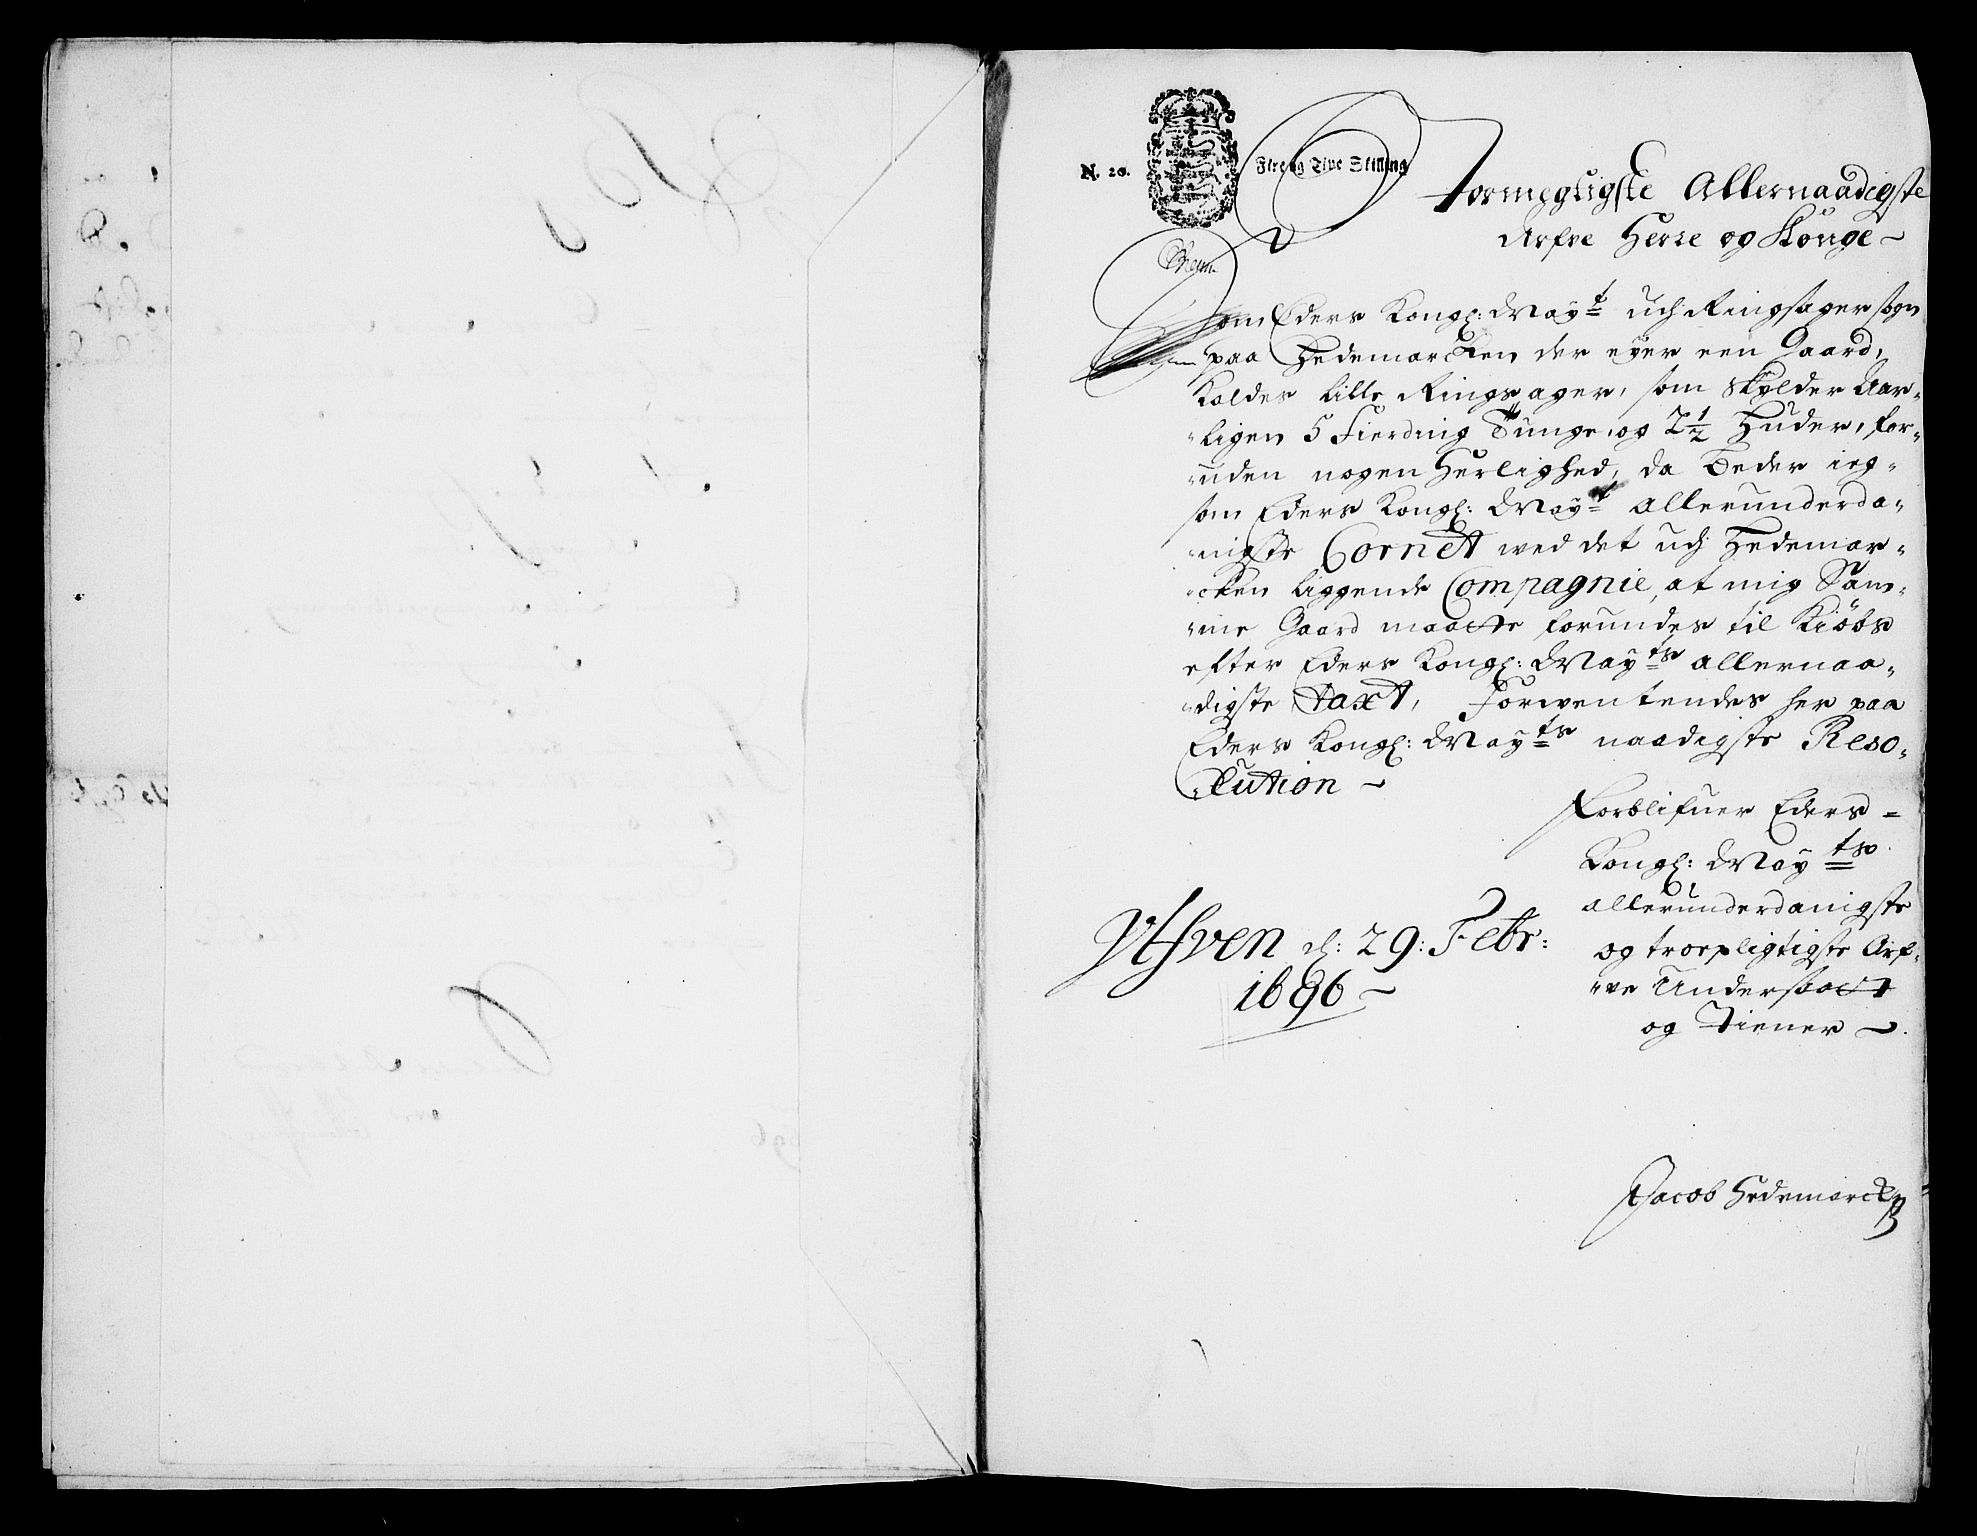 N. 20.
Fire og Tive Skilling
Stormegtigste Allernaadigste
Arfve Herre og Konge
Som Eders Kongl: May:t udj Ringsager sogn
paa Hedemarcken der eyer een Gaard,
Kaldes Lille Ringsager, som skylder Aar-
ligen 5 Fierding Tunge, og 2 1/2 Huder, for-
uden nogen Herlighed, da beder ieg
som Eders Kongl: May:t allerunderda-
nigste Cornet wed det udj Hedemar-
cken liggende Compagnie, at mig Sam-
me Gaard maatte forundes til Kiøbs
efter Eders Kongl: May:ts allernaa-
digste taxt, Forwentendes her paa
Eders Kongl: May:ts naadigste Reso-
lution
Forblifuer Eders
Kongl: May:ts
allerunderdanigste
og troepligtigste Arf-
ve Undersaatt
og Tiener
d: 29: Febr:
1696
Jacob Hedemarck